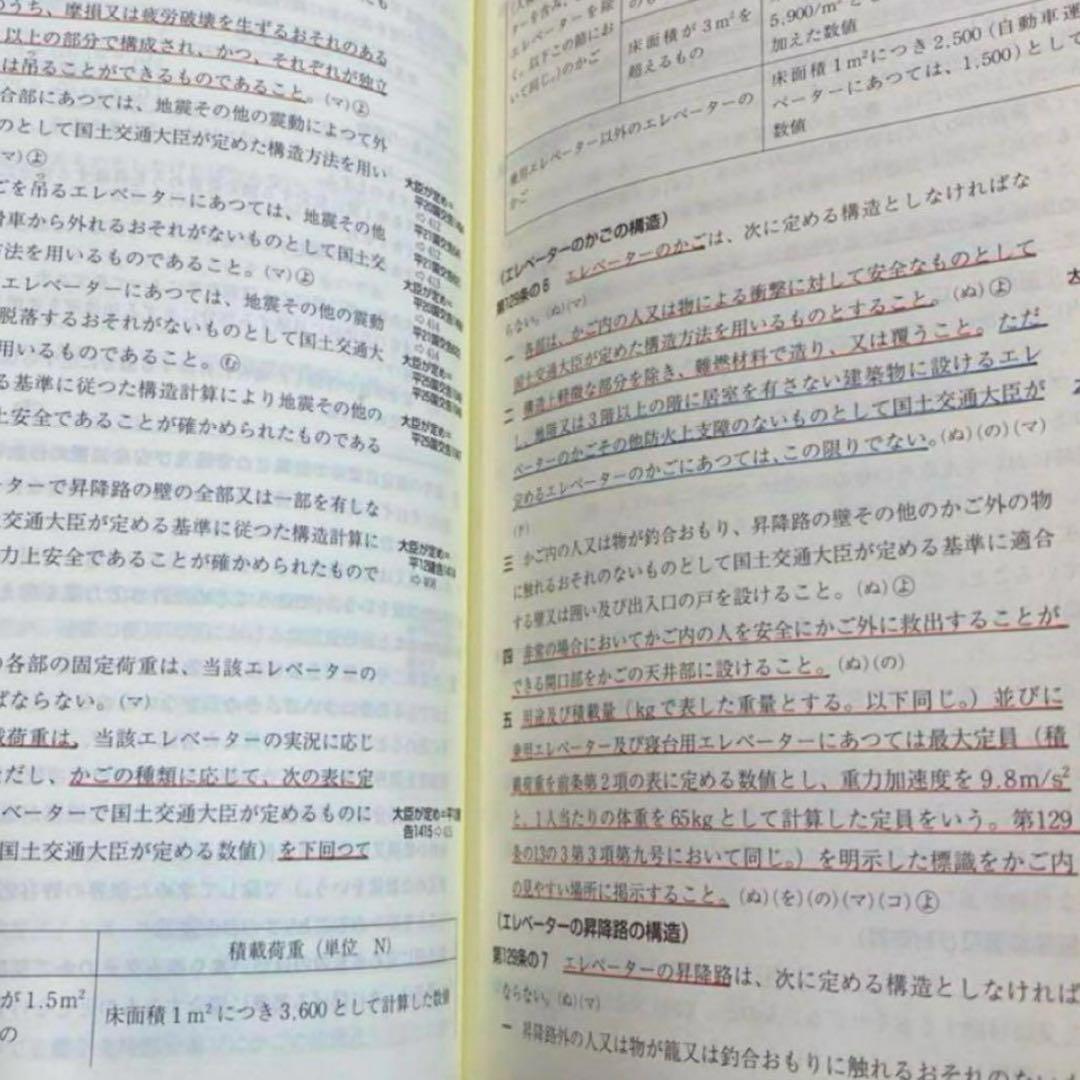 のうち、摩損又は疲労破壊を生ずるおそれのある
以上の部分で構成され、かつ、それぞれが独立
は吊ることができるものであること。(マ)㋵
合部にあつては、地震その他の震動によつて外
のとして国土交通大臣が定めた構造方法を用い
(マ)㋵
ごを吊るエレベーターにあつては、地震その他
滑車から外れるおそれがないものとして国土交
方法を用いるものであること。(マ)㋵
エレベーターにあつては、地震その他の震動
脱落するおそれがないものとして国土交通大
用いるものであること。㋰
る基準に従つた構造計算により地震その他の
上安全であることが確かめられたものである
ーターで昇降路の壁の全部又は一部を有しな
交通大臣が定める基準に従つた構造計算に
力上安全であることが確かめられたもので
の各部の固定荷重は、当該エレベーターの
ばならない。(マ)
載荷重は、当該エレベーターの実況に応じ
ただし、かごの種類に応じて、次の表に定
ベーターで国土交通大臣が定めるものに
国土交通大臣が定める数値)を下回つて
積載荷重(単位 N)
が1.5m²
の
床面積1m²につき3,600として計算した数値
大臣が定め=
大臣が定め=
大臣が定め=
大臣が定め=
大臣が定め=
大臣が定め=平12建
告1415
ーターを含み、
エレベーターを除
く。以下この節にお
いて同じ。)のかご
床面積が3m²を
超えるもの
5,900/m²と
加えた数値
乗用エレベーター以外のエレベーターの
かご
床面積1m²につき2,500(自動車運
ベーターにあつては、1,500)として
数値
(エレベーターのかごの構造)
第129条の6 エレベーターのかごは、次に定める構造としなければな
らない。(ぬ)(マ)
一 各部は、かご内の人又は物による衝撃に対して安全なものとして
国土交通大臣が定めた構造方法を用いるものとすること。(ぬ)㋵
二 構造上軽微な部分を除き、難燃材料で造り、又は覆うこと。ただ
し、地階又は3階以上の階に居室を有さない建築物に設けるエレ
ベーターのかごその他防火上支障のないものとして国土交通大臣が
定めるエレベーターのかごにあつては、この限りでない。(ぬ)(の)(マ)
(テ)
三 かご内の人又は物が釣合おもり、昇降路の壁その他のかご外の物
に触れるおそれのないものとして国土交通大臣が定める基準に適合
する壁又は囲い及び出入口の戸を設けること。(ぬ)㋵
四 非常の場合においてかご内の人を安全にかご外に救出することが
できる開口部をかごの天井部に設けること。(ぬ)(の)
五 用途及び積載量(kgで表した重量とする。以下同じ。)並びに
乗用エレベーター及び寝台用エレベーターにあつては最大定員(積
載荷重を前条第2項の表に定める数値とし、重力加速度を9.8m/s²
と、1人当たりの体重を65kgとして計算した定員をいう。第129
条の13の3第3項第九号において同じ。)を明示した標識をかご内
の見やすい場所に掲示すること。(ぬ)(を)(の)(マ)(コ)㋵
(エレベーターの昇降路の構造)
第129条の7 エレベーターの昇降路は、次に定める構造としなければ
ならない。(ぬ)(マ)
一 昇降路外の人又は物が籠又は釣合おもりに触れるおそれのない